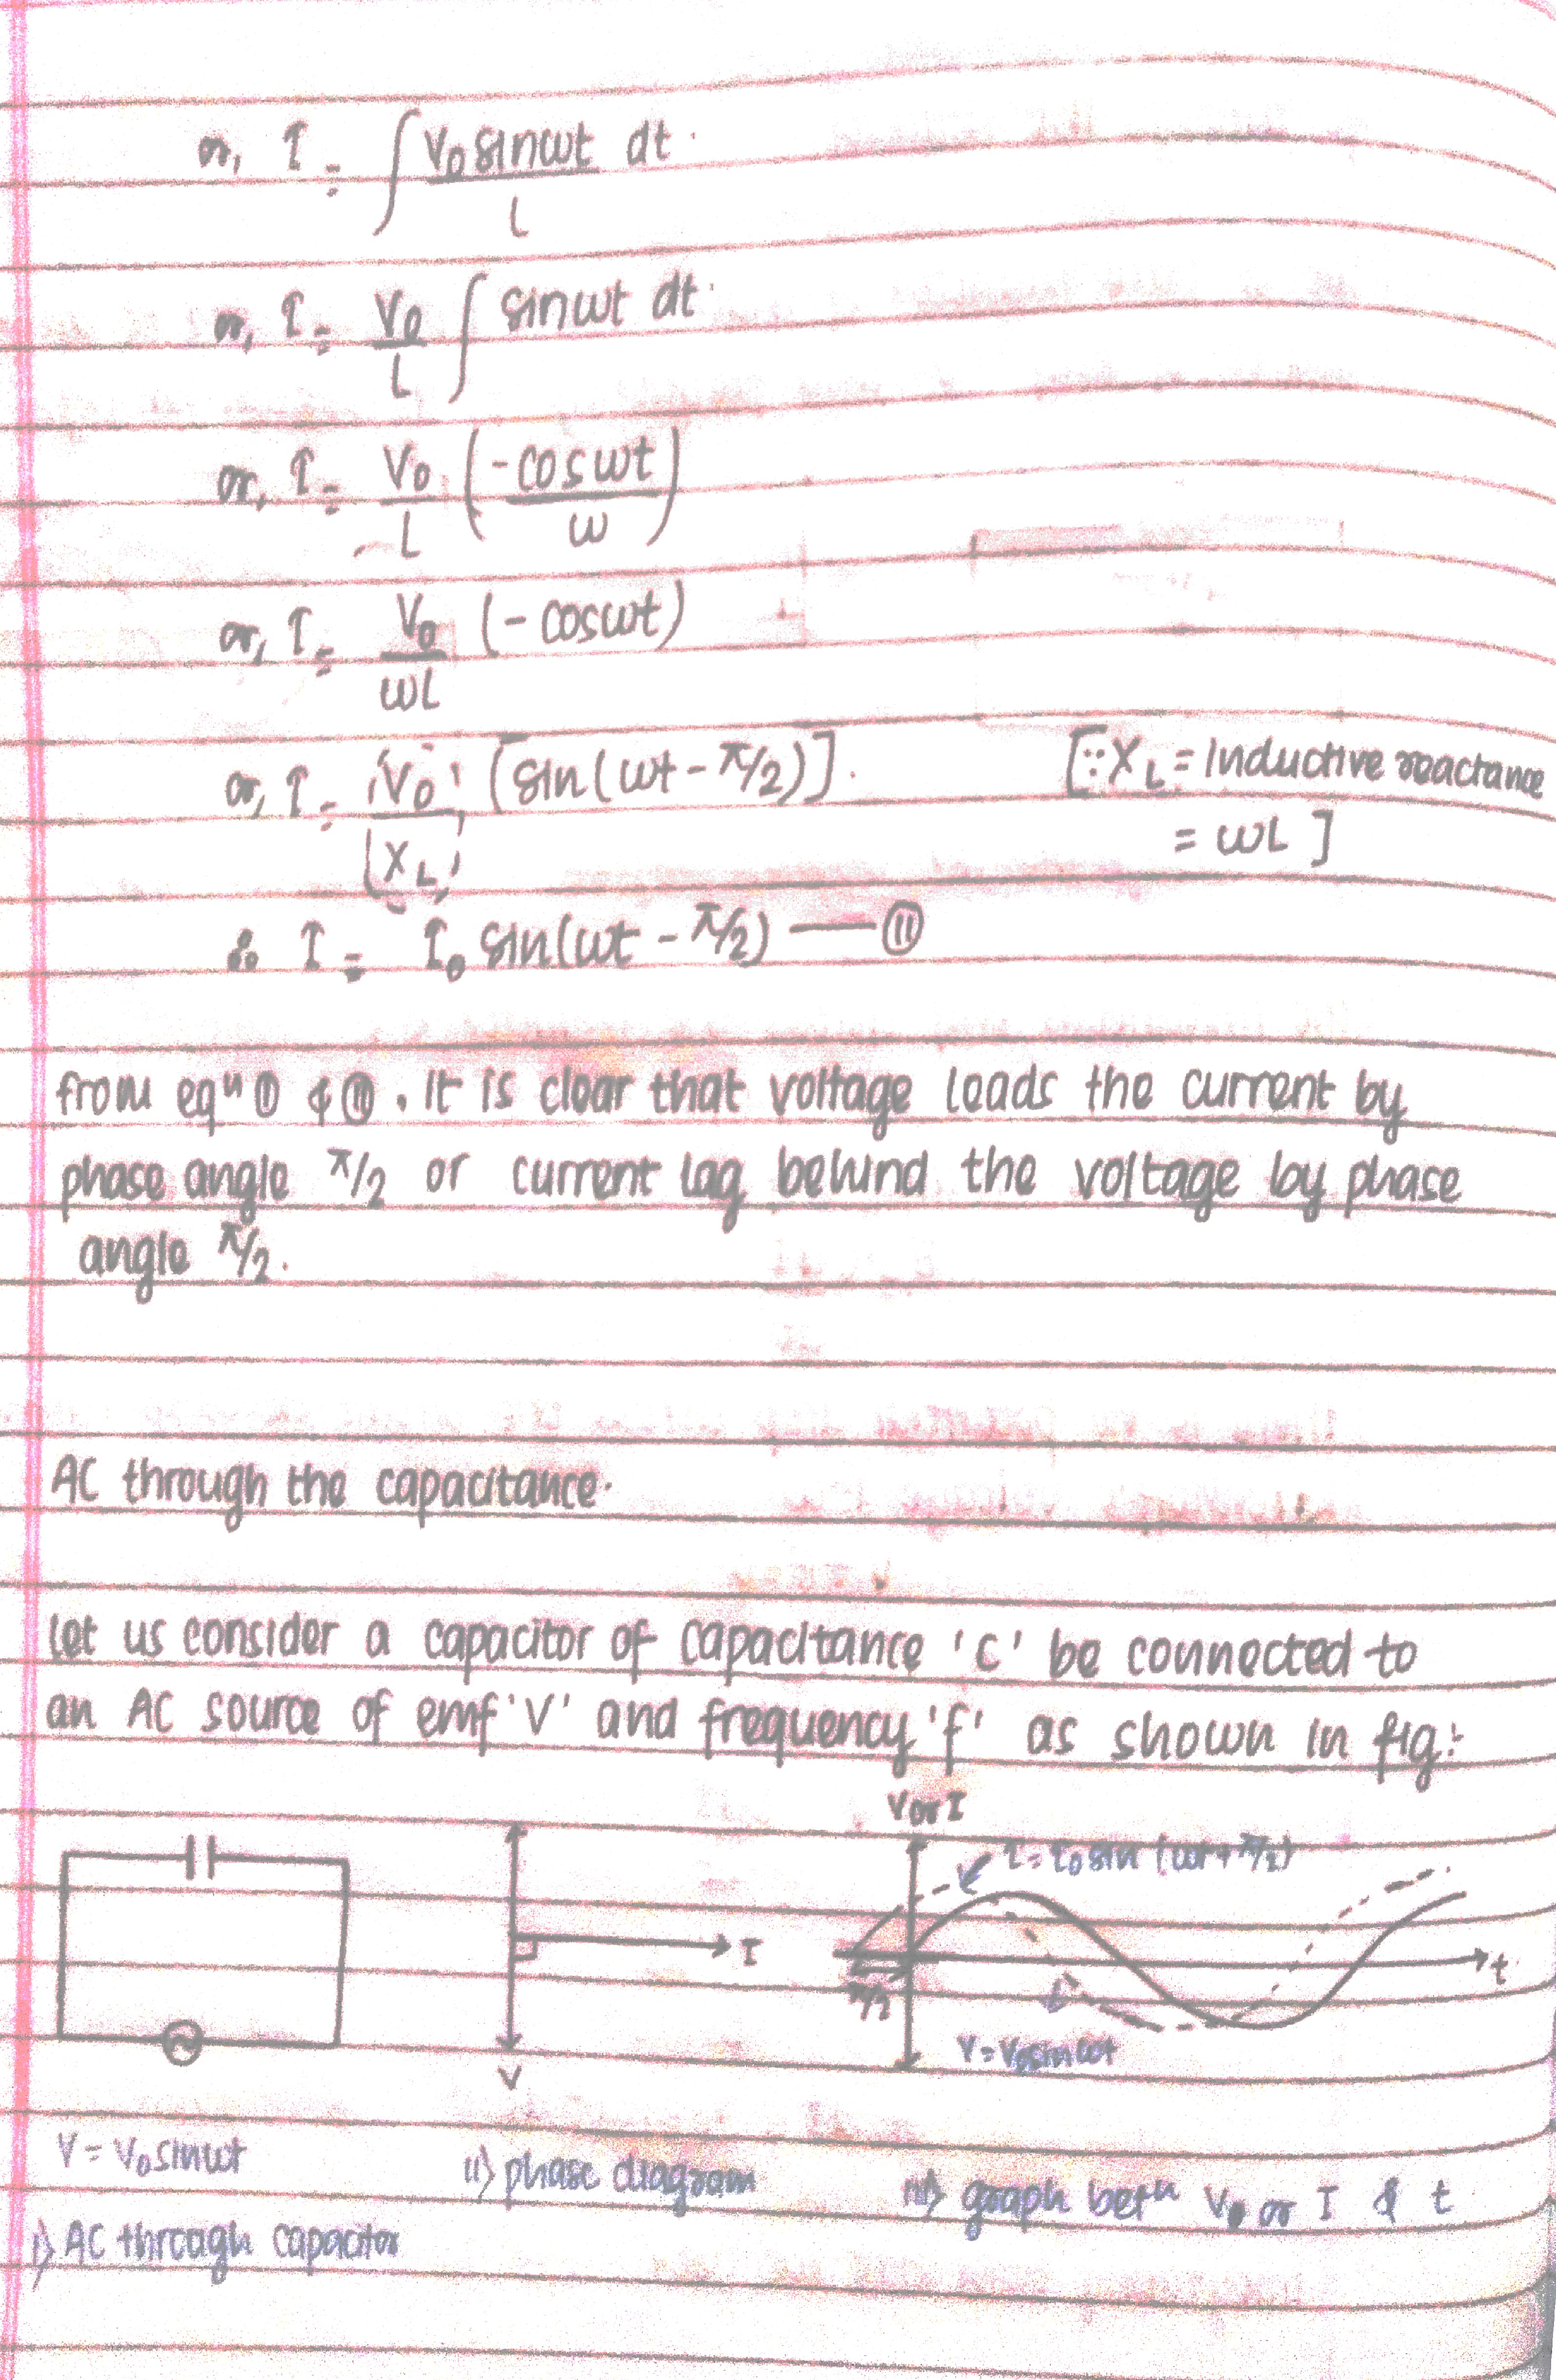 or, I = ∫ V₀ sinωt / L dt.
or, I = V₀/L ∫ sinωt dt.
or, I = V₀/L (-cosωt/ω)
or, I = V₀/ωL (-cosωt)
or, I = V₀/X_L [sin(ωt - π/2)]. [∵ X_L = Inductive reactance
= ωL ]
∴ I = I₀ sin(ωt - π/2) — (II)
from eqⁿ (I) & (II), It is clear that voltage leads the current by
phase angle π/2 or current lag behind the voltage by phase
angle π/2.
AC through the capacitance.
Let us consider a capacitor of capacitance 'C' be connected to
an AC source of emf 'V' and frequency 'f' as shown in fig:-
V or I
I = I₀ sin (ωt + π/2)
I
t
π/2
V = V₀ sin ωt
V
V = V₀ sinωt
ii) phase diagram
iii) graph betⁿ V₀ or I & t
i) AC through capacitor